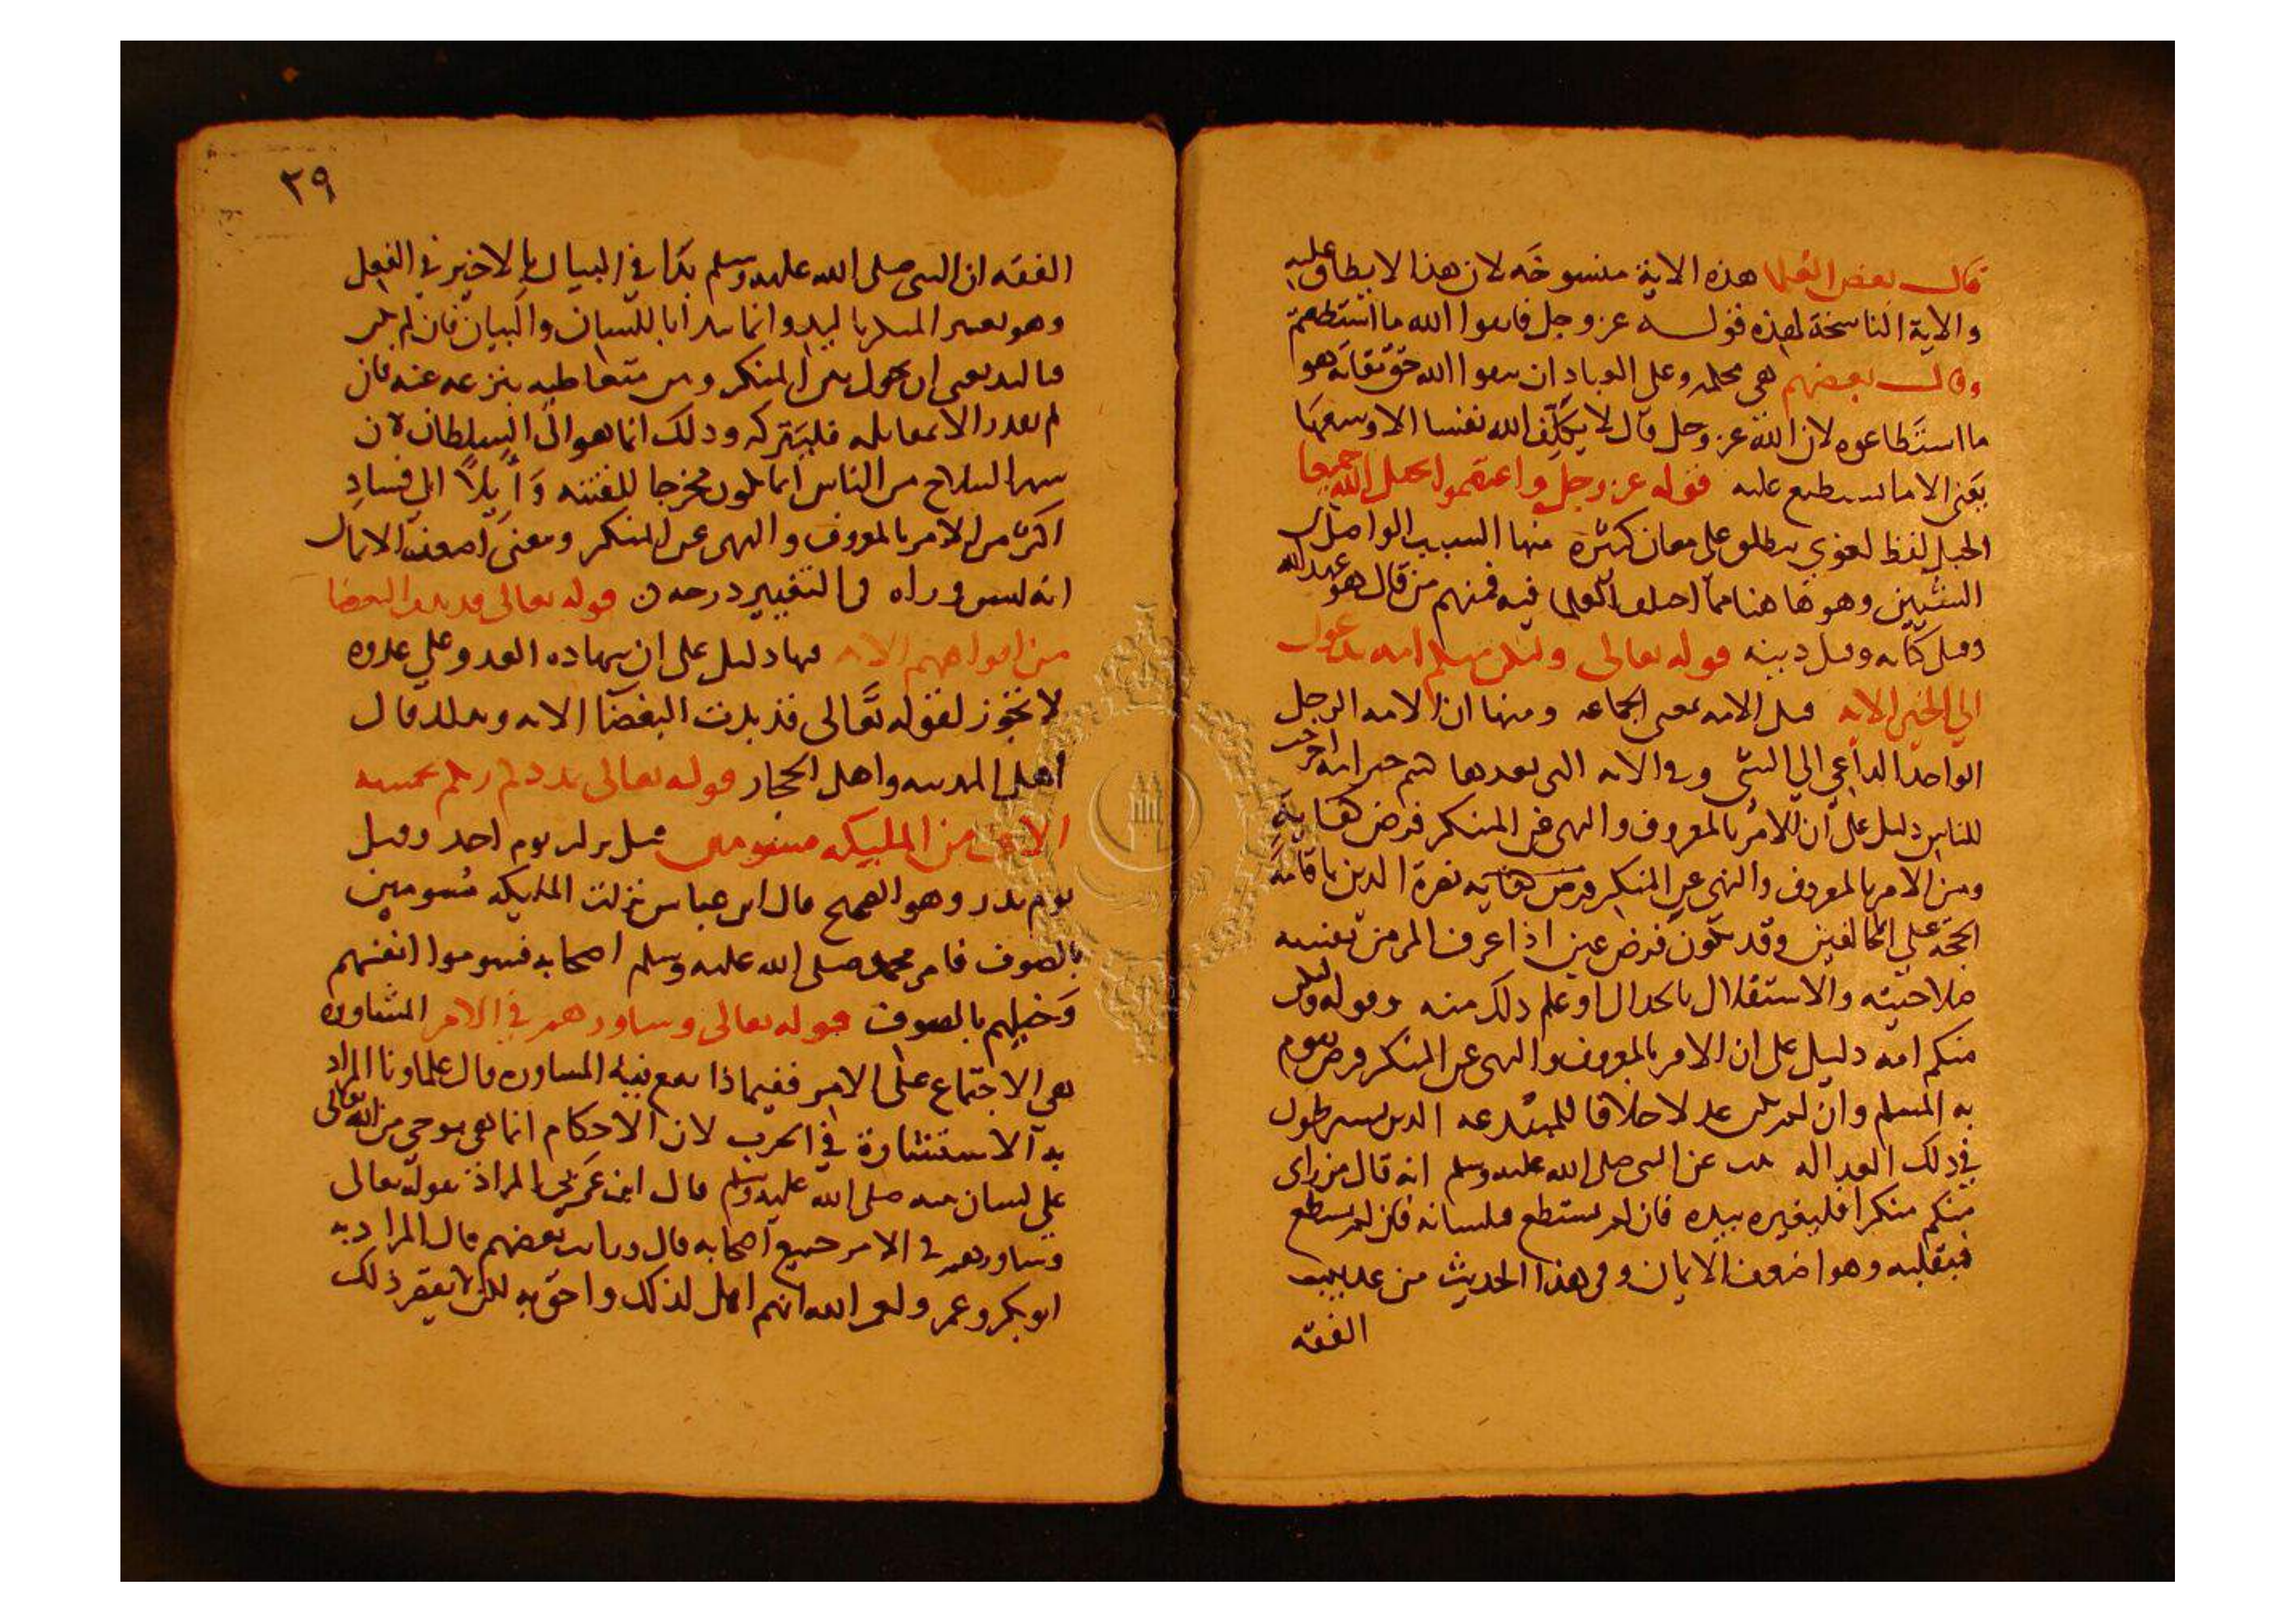 قال بعض العلما هذه الاية منسوخه لان هذا لا يطاق عليه
والاية الناسخة لهذه قوله عز وجل فاتقوا الله ما استطعتم
وقال بعضهم هي محكمه وعلى العباد ان يتقوا الله حق تقاته هو
ما استطاعوه لان الله عز وجل قال لا يكلف الله نفسا الا وسعها
يعني الا ما تستطيع عليه قوله عز وجل واعتصموا بحبل الله جميعا
الحبل لفظ لغوي ينطلق على معان كثيرة منها السبب الواصل
الشيين وهو ها هنا مما اختلف العلما فيه فمنهم من قال هو عهد الله
وقيل كتابه وقيل دينه قوله تعالى ولتكن منكم امه يدعون
الي الخير الايه قيل الامه بمعنى الجماعه ومنها ان الامه الرجل
الواحد الداعي الي الشي وفي الايه التي بعدها كنتم خير امه اخرجت
للناس دليل على ان الامر بالمعروف والنهي عن المنكر فرض كفاية
ومن الامر بالمعروف والنهي عن المنكر فرض كفايه نصرة الدين باقامة
الحجة علي المخالفين وقد يكون فرض عين اذا عرف المر من نفسه
صلاحيته والاستقلال بالجدال او علم ذلك منه وقوله ولتكن
منكم امه دليل على ان الامر بالمعروف والنهي عن المنكر فرض يقوم
به المسلم وان لم يكن عدلا خلافا للمبتدعه الذين يشترطون
في ذلك العداله ثبت عن النبي صلى الله عليه وسلم انه قال من راى
منكم منكرا فليغيره بيده فان لم يستطع فبلسانه فان لم يستطع
فبقلبه وهو اضعف الايمان وفي هذا الحديث من غريب
الفقه
٢٩
الفقه ان النبي صلى الله عليه وسلم بدا في البيان بالاخير في الفعل
وهو تغيير المنكر باليد وانما يبدا باللسان والبيان فان لم يكن
فباليد يعني ان يحول بين المنكر وبين متعاطيه بنزعه عنه فان
لم يقدر الا بمقاتله فليتركه وذلك انما هو الى السلطان لان
شهر السلاح من الناس انما يكون مخرجا للفتنه وايلا الي فساد
اكثر من الامر بالمعروف والنهي عن المنكر ومعنى اضعف الايمان
انه ليس وراه في التغيير درجه قوله تعالى قد بدت البغضا
من افواههم الايه فيها دليل على ان شهاده العدو علي عدوه
لا تجوز لقوله تعالى قد بدت البغضا الايه وبذلك قال
اهل المدينه واهل الحجاز قوله تعالى يمددكم ربكم بخمسه
الاف من المليكه مسومين قيل نزلت يوم احد وقيل
يوم بدر وهو الصحيح قال ابن عباس نزلت المليكه مسومين
بالصوف فامر محمد صلى الله عليه وسلم اصحابه فسوموا انفسهم
وخيلهم بالصوف قوله تعالى وشاورهم في الامر المشاوره
هي الاجتماع على الامر ففيماذا تقع فيه المشاوره قال علماونا المراد
به الاستشارة في الحرب لان الاحكام انما هي بوحي من الله تعالى
على لسان نبيه صلى الله عليه وسلم قال ابن عمر بل المراد بقوله تعالى
وشاورهم في الامر جميع اصحابه قال وقال بعضهم قال المراد به
ابو بكر وعمر ولعمر الله انهم اهل لذلك واحق به لكن لا يقصر ذلك